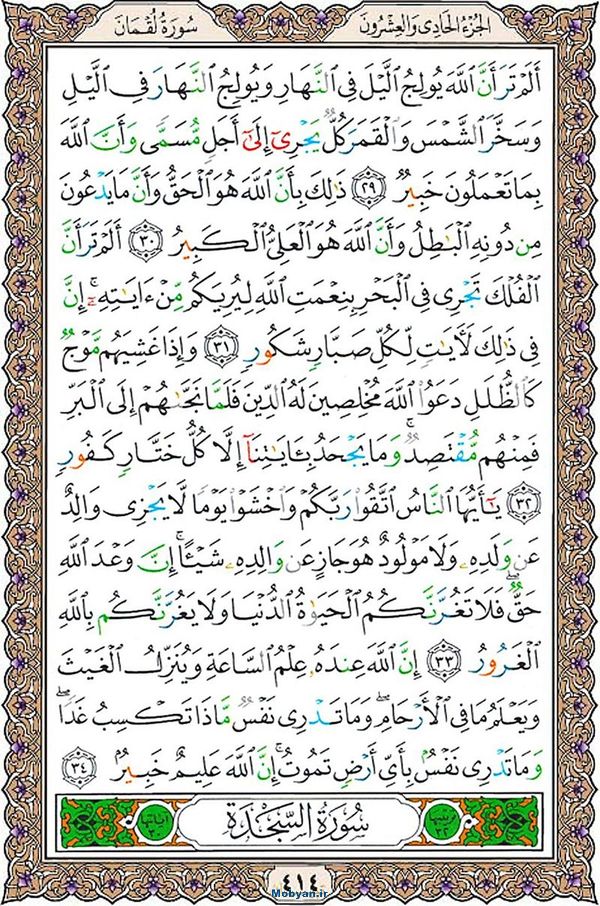 الجُزءُ الحَادِي وَالعِشرُونَ
سُورَةُ لُقۡمَانَ
أَلَمۡ تَرَ أَنَّ ٱللَّهَ يُولِجُ ٱلَّيۡلَ فِي ٱلنَّهَارِ وَيُولِجُ ٱلنَّهَارَ فِي ٱلَّيۡلِ
وَسَخَّرَ ٱلشَّمۡسَ وَٱلۡقَمَرَ كُلّٞ يَجۡرِيٓ إِلَىٰٓ أَجَلٖ مُّسَمّٗى وَأَنَّ ٱللَّهَ
بِمَا تَعۡمَلُونَ خَبِيرٞ ٢٩ ذَٰلِكَ بِأَنَّ ٱللَّهَ هُوَ ٱلۡحَقُّ وَأَنَّ مَا يَدۡعُونَ
مِن دُونِهِ ٱلۡبَٰطِلُ وَأَنَّ ٱللَّهَ هُوَ ٱلۡعَلِيُّ ٱلۡكَبِيرُ ٣٠ أَلَمۡ تَرَ أَنَّ
ٱلۡفُلۡكَ تَجۡرِي فِي ٱلۡبَحۡرِ بِنِعۡمَتِ ٱللَّهِ لِيُرِيَكُم مِّنۡ ءَايَٰتِهِۦٓۚ إِنَّ
فِي ذَٰلِكَ لَأٓيَٰتٖ لِّكُلِّ صَبَّارٖ شَكُورٖ ٣١ وَإِذَا غَشِيَهُم مَّوۡجٞ
كَٱلظُّلَلِ دَعَوُاْ ٱللَّهَ مُخۡلِصِينَ لَهُ ٱلدِّينَ فَلَمَّا نَجَّىٰهُمۡ إِلَى ٱلۡبَرِّ
فَمِنۡهُم مُّقۡتَصِدٞۚ وَمَا يَجۡحَدُ بِـَٔايَٰتِنَآ إِلَّا كُلُّ خَتَّارٖ كَفُورٖ
٣٢ يَٰٓأَيُّهَا ٱلنَّاسُ ٱتَّقُواْ رَبَّكُمۡ وَٱخۡشَوۡاْ يَوۡمٗا لَّا يَجۡزِي وَالِدٌ
عَن وَلَدِهِۦ وَلَا مَوۡلُودٌ هُوَ جَازٍ عَن وَالِدِهِۦ شَيۡـًٔاۚ إِنَّ وَعۡدَ ٱللَّهِ
حَقّٞۖ فَلَا تَغُرَّنَّكُمُ ٱلۡحَيَوٰةُ ٱلدُّنۡيَا وَلَا يَغُرَّنَّكُم بِٱللَّهِ
ٱلۡغَرُورُ ٣٣ إِنَّ ٱللَّهَ عِندَهُۥ عِلۡمُ ٱلسَّاعَةِ وَيُنَزِّلُ ٱلۡغَيۡثَ
وَيَعۡلَمُ مَا فِي ٱلۡأَرۡحَامِۖ وَمَا تَدۡرِي نَفۡسٞ مَّاذَا تَكۡسِبُ غَدٗاۖ
وَمَا تَدۡرِي نَفۡسُۢ بِأَيِّ أَرۡضٖ تَمُوتُۚ إِنَّ ٱللَّهَ عَلِيمٌ خَبِيرُۢ ٣٤
ترتيبها ٣٢
سُورَةُ السَّجۡدَةِ
آياتها ٣٠
٤١٤
Mobyan.ir